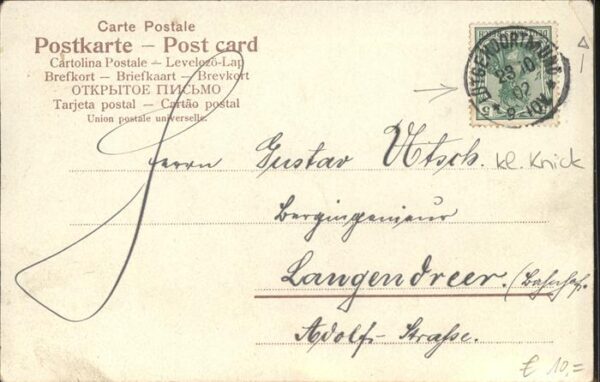 Carte Postale
Postkarte – Post card
Cartolina Postale – Levelező-Lap
Brefkort – Briefkaart – Brevkort
ОТКРЫТОЕ ПИСЬМО
Tarjeta postal – Cartão postal
Union postale universelle.
LÜTGENDORTMUND
9-10V
Herrn Gustav Utsch.
kl. Knick
Bergingenieur
Langendreer. (Bahnhof.
Adolf-Strasse.
€ 10,=